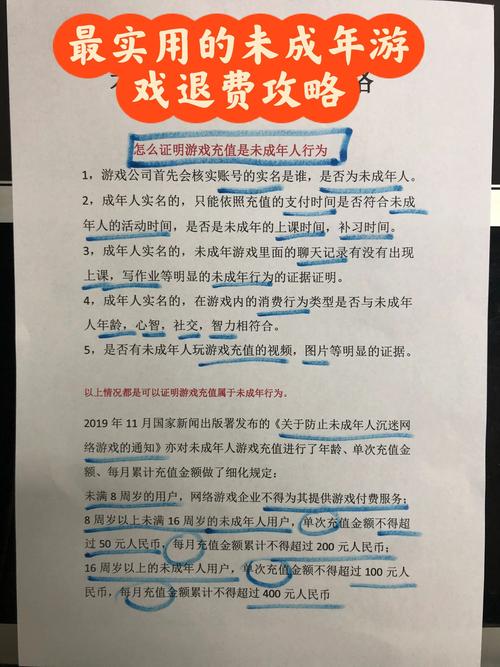 最实用的未成年游
戏退费攻略
怎么证明游戏充值是未成年人行为
1，游戏公司首先会核实账号的实名是谁，是否为未成年人。
2，成年人实名的，只能依照充值的支付时间是否符合未成
年人的活动时间，是否是未成年的上课时间，补习时间。
3，成年人实名的，未成年游戏里面的聊天记录有没有出现
上课，写作业等明显的未成年行为的证据证明。
4，成年人实名的，在游戏内的消费行为类型是否与未成年
人年龄，心智，社交，智力相符合。
5，是否有未成年人玩游戏充值的视频，图片等明显的证据。
以上情况都是可以证明游戏充值属于未成年行为。
2019 年 11 月国家新闻出版署发布的《关于防止未成年人沉迷网
络游戏的通知》亦对未成年人游戏充值进行了年龄、单次充值金
额、每月累计充值金额做了细化规定：
未满 8 周岁的用户，网络游戏企业不得为其提供游戏付费服务；
8 周岁以上未满 16 周岁的未成年人用户，单次充值金额不得超
过 50 元人民币，每月充值金额累计不得超过 200 元人民币；
16 周岁以上的未成年人用户，单次充值金额不得超过 100 元人
民币，每月充值金额累计不得超过 400 元人民币